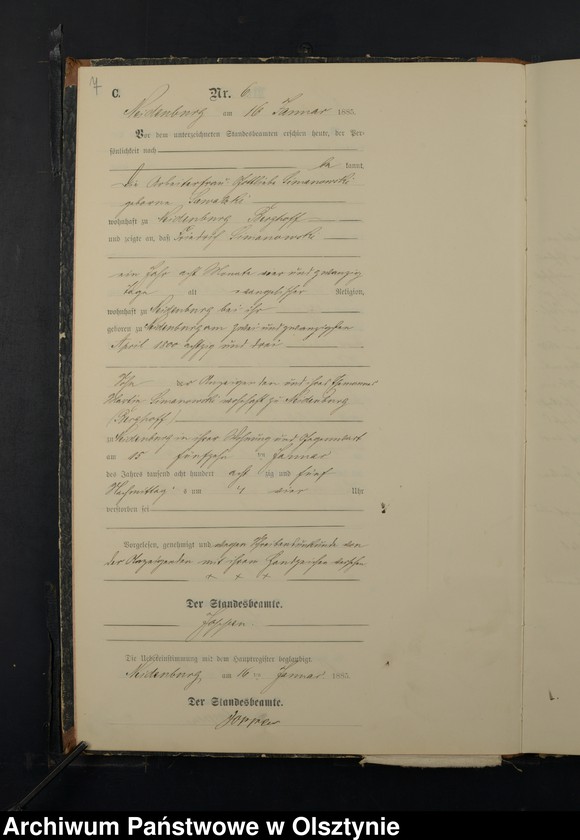 7
C.
Nr. 6
Neidenburg am 16 Januar 1885.
Vor dem unterzeichneten Standesbeamten erschien heute, der Per-
sönlichkeit nach
be kannt,
die Arbeiterfrau Gottliebe Simanowski
geborene
wohnhaft zu Neidenburg Berghoff
und zeigte an, daß Friedrich Simanowski
ein Jahr acht Monate vier und zwanzig
Tage alt evangelischer Religion,
wohnhaft zu Neidenburg bei ihr
geboren zu Neidenburg am zwei und zwanzigsten
April 1800 achtzig und drei
Sohn der Anzeigenden und ihres Ehemannes
Martin Simanowski wohnhaft zu Neidenburg
(Berghoff)
zu Neidenburg in ihrer Wohnung und Gegenwart
am 15 fünfzehn ten Januar
des Jahres tausend acht hundert acht zig und fünf
Nachmittag s um 4 vier Uhr
verstorben sei
Vorgelesen, genehmigt und wegen Schreibensunkunde von
der Anzeigenden mit ihrem Handzeichen versehen
+ + +
Der Standesbeamte.
Die Uebereinstimmung mit dem Hauptregister beglaubigt.
Neidenburg, am 16 ten Januar 1885.
Der Standesbeamte.
Archiwum Państwowe w Olsztynie